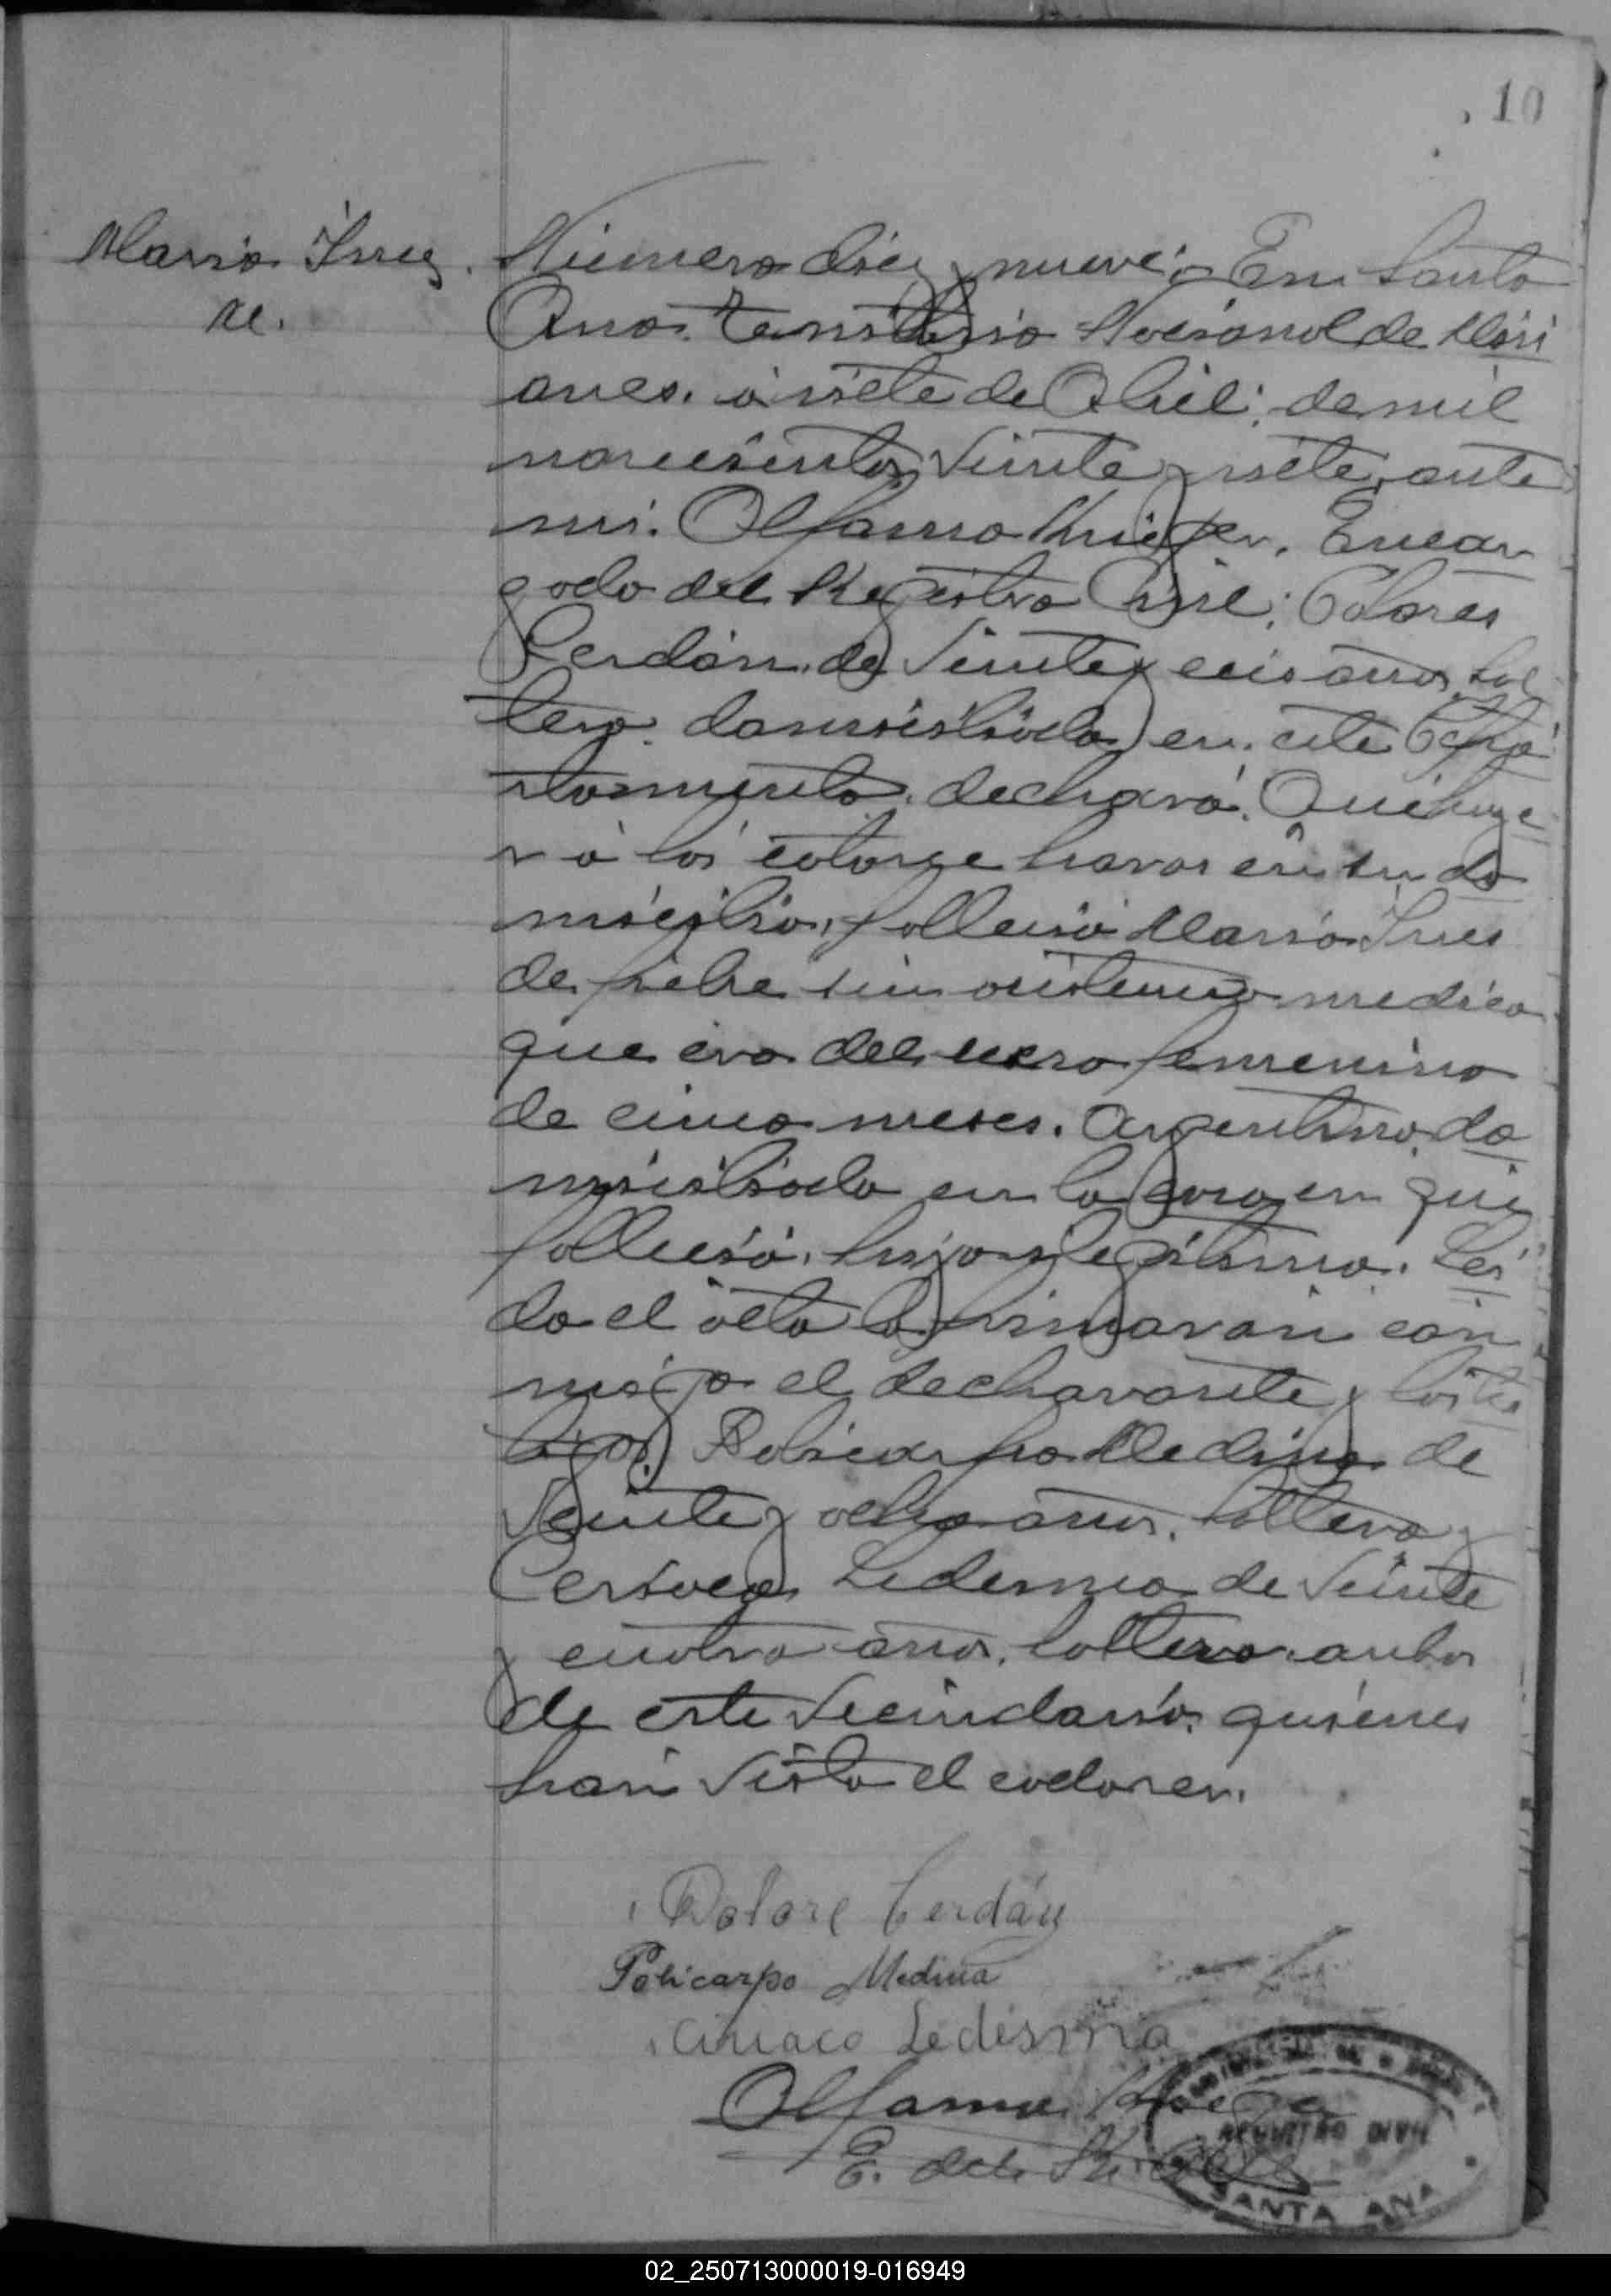 10
Maria Ines
N.
Número diez y nueve: En Santa
Ana. Territorio Nacional de Misi
ones. á siete de Abril: de mil
novecientos veinte y siete, ante
mi. Encar
gado del Registro Civil: Dolores
Cerdán. de veinte y seis años, sol
tero. domiciliado en este Depar
tamento. declaró. Que hoy
á las catorce horas en su do
micilio, fallecio Maria Ines
de fiebre sin asistencia medica
que era del sexo femenino
de cinco meses. argentina, do
miciliada en la casa en que
falleció. hija ilegitima. Lei
da el acta la firmaran con
migo el declarante y los tes
tigos Policarpo Medina de
veinte y ocho años. soltero y
Ciriaco Ledesma de veinte
y cuatro años. soltero. ambos
de este vecindario. quienes
han visto el cadaver.
Dolore Cerdán
Policarpo Medina
Ciriaco Ledisma
E. del R. Civil
REGISTRO CIVIL
SANTA ANA
02_250713000019-016949